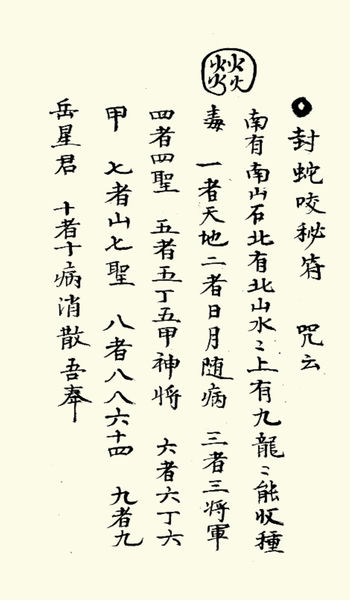 封蛇咬秘符 咒云
南有南山石北有北山水〻上有九龍〻能收種
毒 一者天地二者日月随病 三者三将軍
四者四聖 五者五丁五甲神将 六者六丁六
甲 七者山七聖 八者八八六十四 九者九
岳星君 十者十病消散吾奉